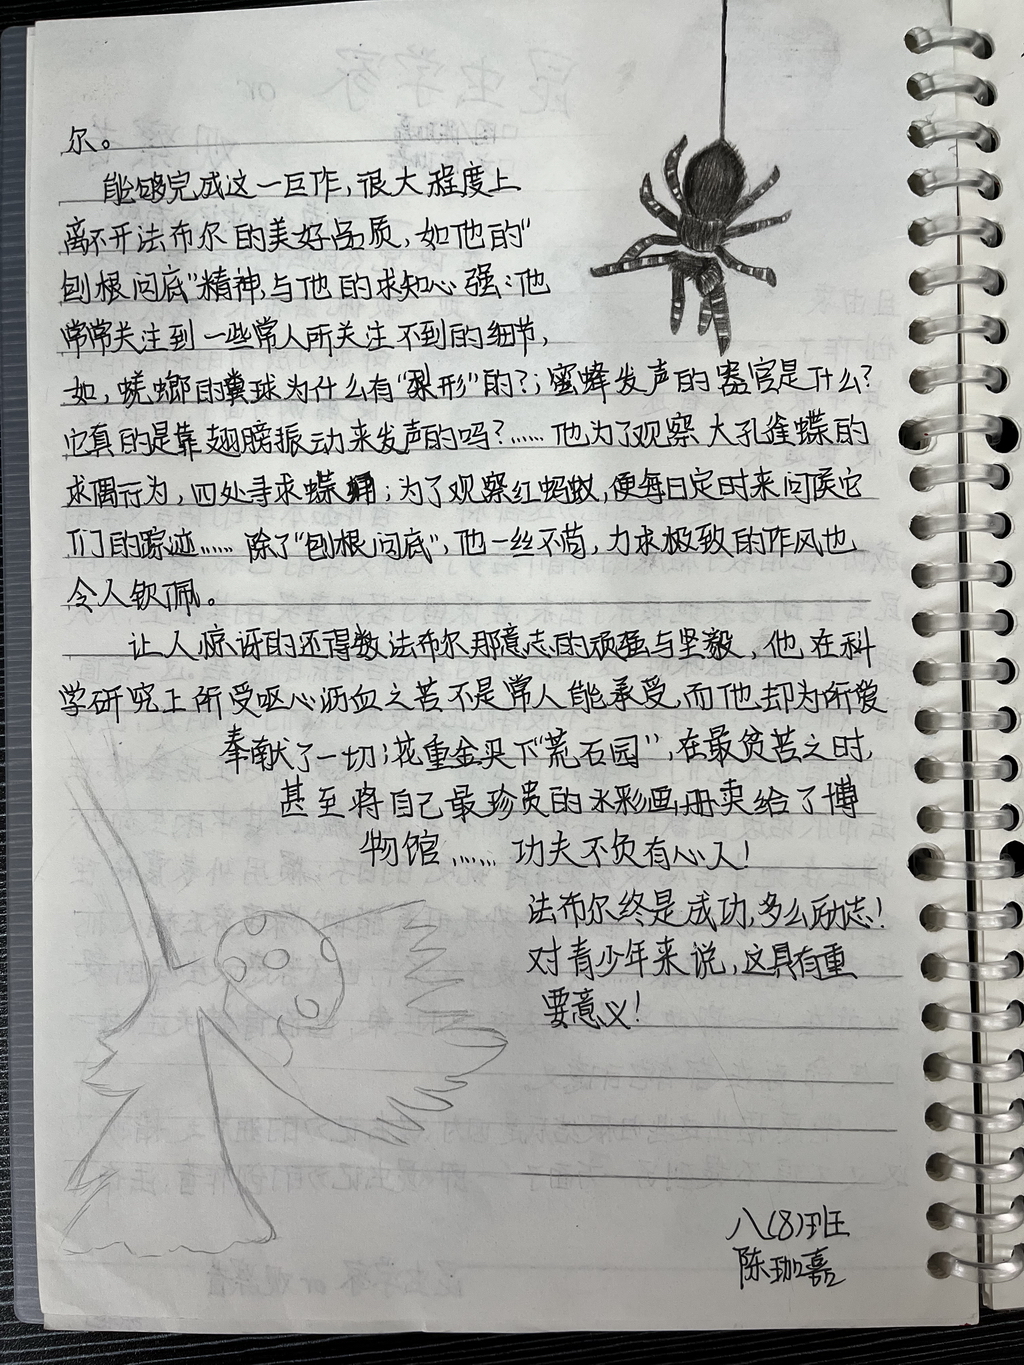 尔。
能够完成这一巨作，很大程度上
离不开法布尔的美好品质，如他的“
刨根问底”精神，与他的求知心强：他
常常关注到一些常人所关注不到的细节，
如，蜣螂的粪球为什么有“梨形”的?；蜜蜂发声的器官是什么?
它真的是靠翅膀振动来发声的吗?……他为了观察大孔雀蝶的
求偶行为，四处寻求蝶蛹；为了观察红蚂蚁，便每日定时来问候它
们的踪迹……除了“刨根问底”，他一丝不苟，力求极致的作风也
令人钦佩。
让人惊讶的还得数法布尔那意志的顽强与坚毅，他在科
学研究上所受呕心沥血之苦不是常人能承受，而他却为所爱
奉献了一切；花重金买下“荒石园”，在最贫苦之时，
甚至将自己最珍贵的水彩画册卖给了博
物馆……功夫不负有心人！
法布尔终是成功，多么励志！
对青少年来说，这具有重
要意义！
八(8)班
陈珈嘉